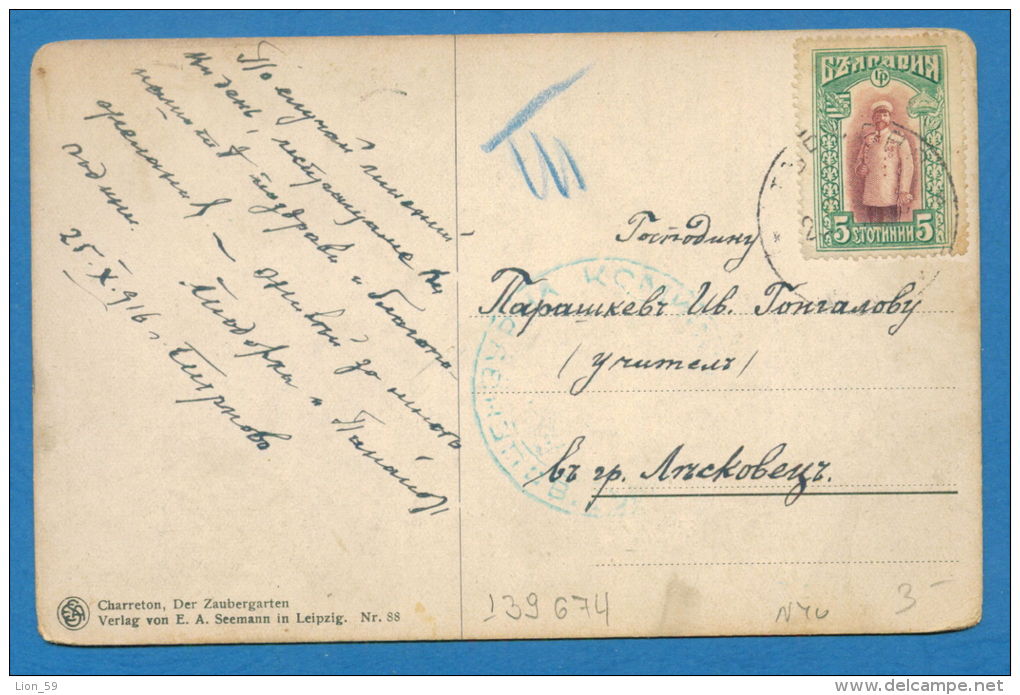 По случай имений
ви день, изпращаме ви
нашите поздрави и благопо-
желания – живый за много
години. Тодорка и Панайот
25.X.916 г. Търново
III
БЪЛГАРИЯ
5 СТОТИНКИ 5
Господину
Парашкевъ Ив. Гонгалову
(учителъ)
въ гр. Лѣсковецъ.
Charreton, Der Zaubergarten
Verlag von E. A. Seemann in Leipzig. Nr. 88
139674
3-
Lion_59
delcampe.net